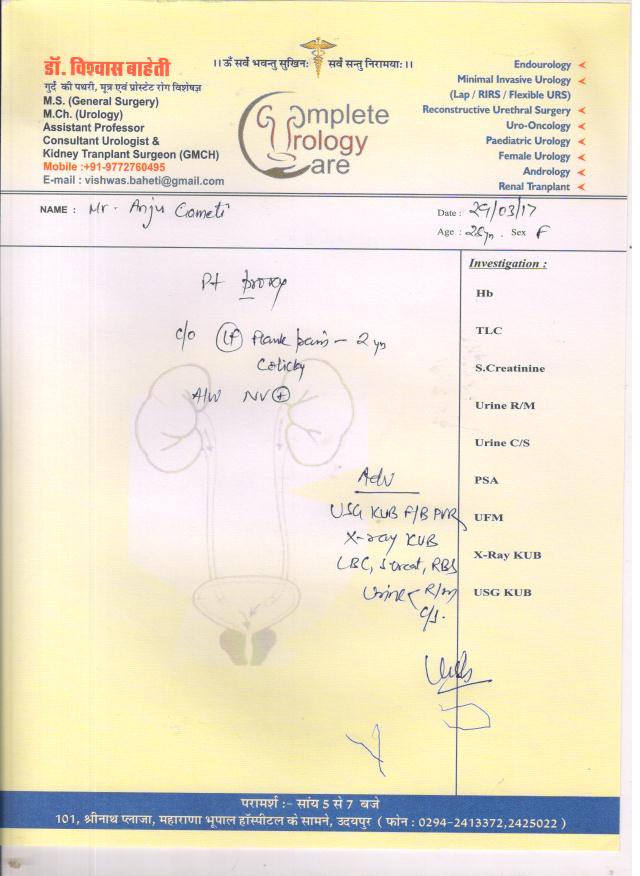 ।।ॐ सर्वे भवन्तु सुखिनः सर्वे सन्तु निरामयाः।।
डॉ. विश्वास बाहेती
गुर्दे की पथरी, मूत्र एवं प्रोस्टेट रोग विशेषज्ञ
M.S. (General Surgery)
M.Ch. (Urology)
Assistant Professor
Consultant Urologist &
Kidney Tranplant Surgeon (GMCH)
Mobile :+91-9772760495
E-mail : vishwas.baheti@gmail.com
Complete
Urology
Care
Endourology
Minimal Invasive Urology
(Lap / RIRS / Flexible URS)
Reconstructive Urethral Surgery
Uro-Oncology
Paediatric Urology
Female Urology
Andrology
Renal Tranplant
NAME : Mr. Anju Gameti
Date : 29/03/17
Age : 28yr. Sex F
Pt
c/o Lt Flank pain - 2 yr
Colicky
A/W NV +
Adv
USG KUB F/B PVR
X-ray KUB
CBC, S. creat, RBS
Urine R/M
C/S.
Investigation :
Hb
TLC
S.Creatinine
Urine R/M
Urine C/S
PSA
UFM
X-Ray KUB
USG KUB
परामर्श :- सांय 5 से 7 बजे
101, श्रीनाथ प्लाजा, महाराणा भूपाल हॉस्पीटल के सामने, उदयपुर ( फोन : 0294-2413372,2425022 )